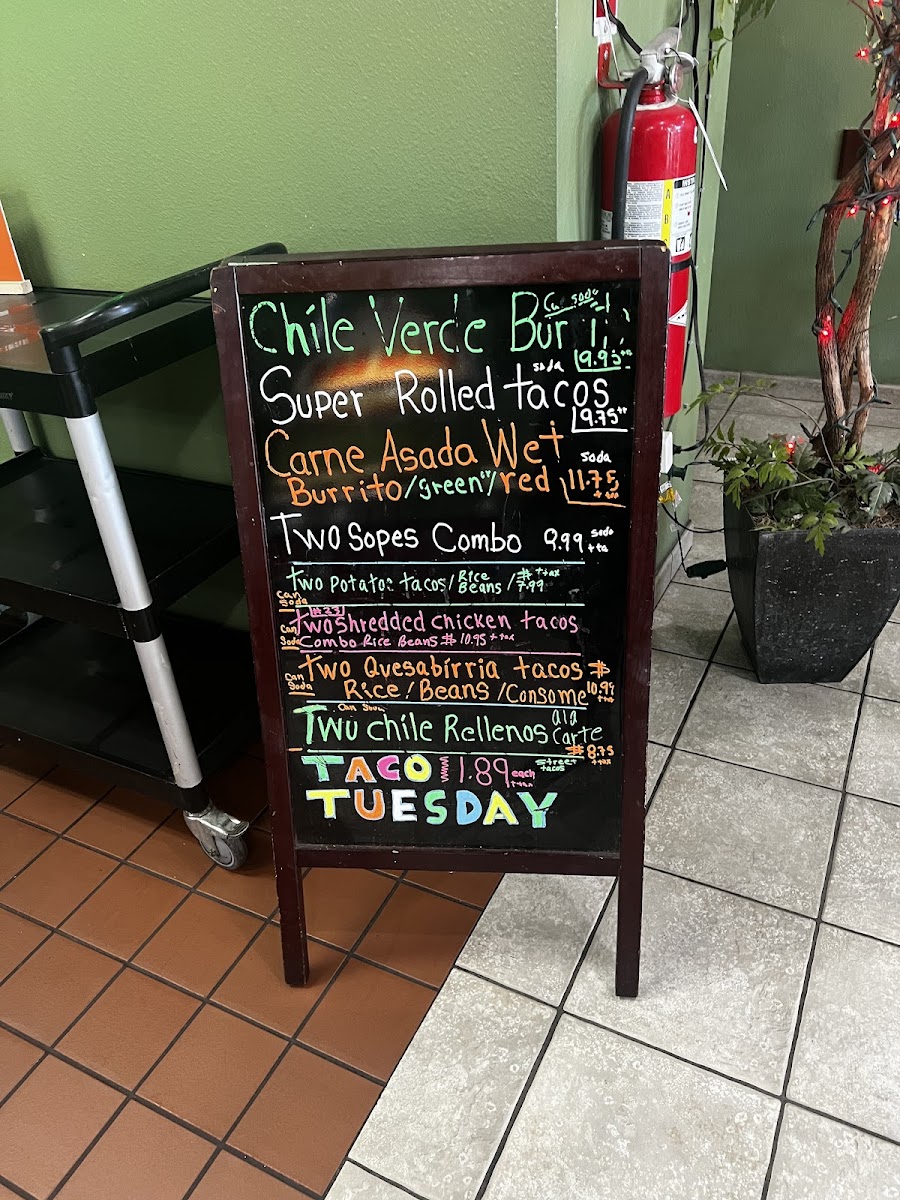 Chile Verde
soda
9.95
Super Rolled tacos
soda
9.75
Carne Asada Wet
soda
Burrito/green or/red 11.75
Two Sopes Combo 9.99 soda
Two Potato tacos/Rice Beans/$7.99 + tax
Can Soda
#23
Two shredded chicken tacos
Can Soda
Combo Rice Beans $10.95 + tax
Two Quesabirria tacos $
Can Soda
Rice/Beans/Consome 10.99
Can Soda
Two chile Rellenos ala Carte
$8.75 + tax
TACO 1.89 each + tax street tacos
TUESDAY
A
B